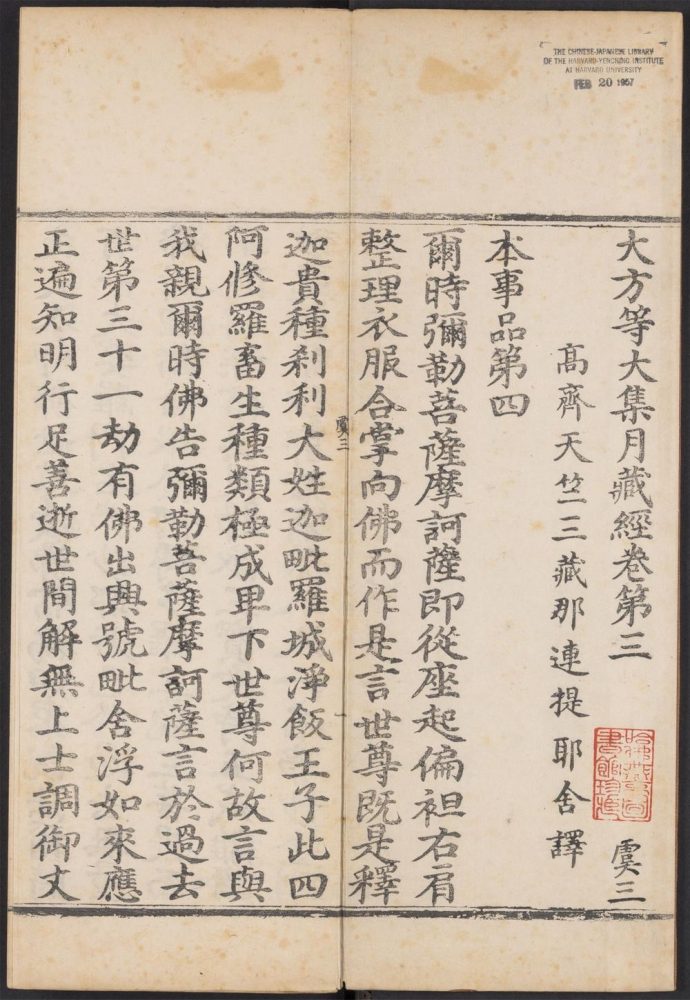 THE CHINESE-JAPANESE LIBRARY
OF THE HARVARD-YENCHING INSTITUTE
AT HARVARD UNIVERSITY
FEB 20 1957
大方等大集月藏經卷第三
虞三
高齊天竺三藏那連提耶舍譯
本事品第四
爾時彌勒菩薩摩訶薩即從座起偏袒右肩
整理衣服合掌向佛而作是言世尊既是釋
虞三
迦貴種刹利大姓迦毗羅城淨飯王子此四
阿修羅畜生種類極成卑下世尊何故言與
我親爾時佛告彌勒菩薩摩訶薩言於過去
世第三十一劫有佛出興號毗舍浮如來應
正遍知明行足善逝世間解無上士調御丈